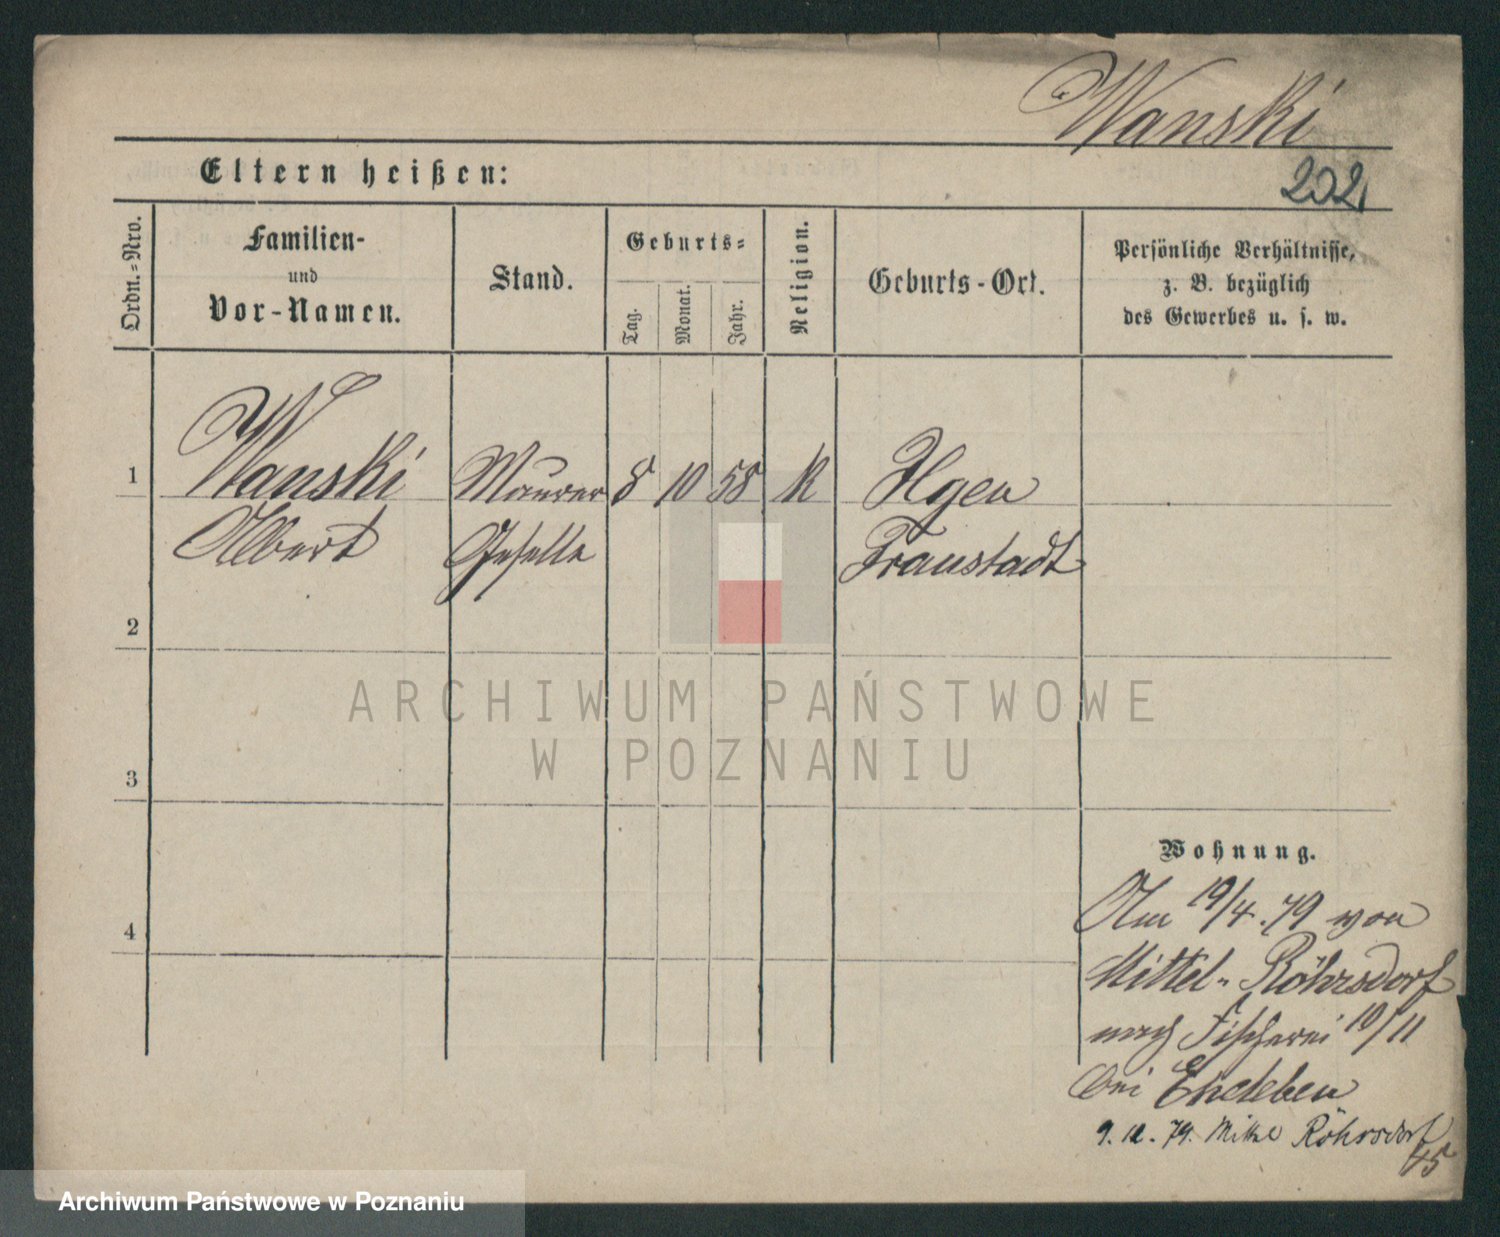 Wanski
Eltern heißen:
202
Ordn.=Nro.
Familien-
und
Vor-Namen.
Stand.
Geburts=
Tag.
Monat.
Jahr.
Religion.
Geburts-Ort.
Persönliche Verhältnisse,
z. B. bezüglich
des Gewerbes u. s. w.
1
Wanski Maurer 8 10 58 K Ilgen
Albert Geselle Fraustadt
2
ARCHIWUM PAŃSTWOWE
W POZNANIU
3
Wohnung.
4
Am 19/4.79 von
Mittel-Röhrsdorf
nach Fischerei 10/11
bei
9. 12. 79. Röhrsdorf
45
Archiwum Państwowe w Poznaniu